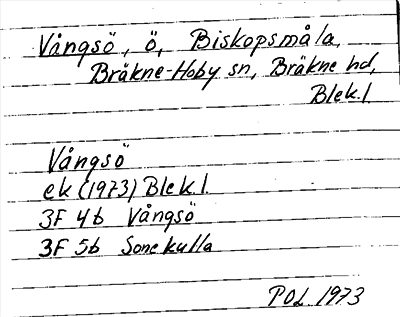 Vångsö, ö, Biskopsmåla,
Bräkne-Hoby sn, Bräkne hd,
Blek.l.
Vångsö
ek (1973) Blek.l.
3F 4b Vångsö
3F 5b Sonekulla
POL 1973